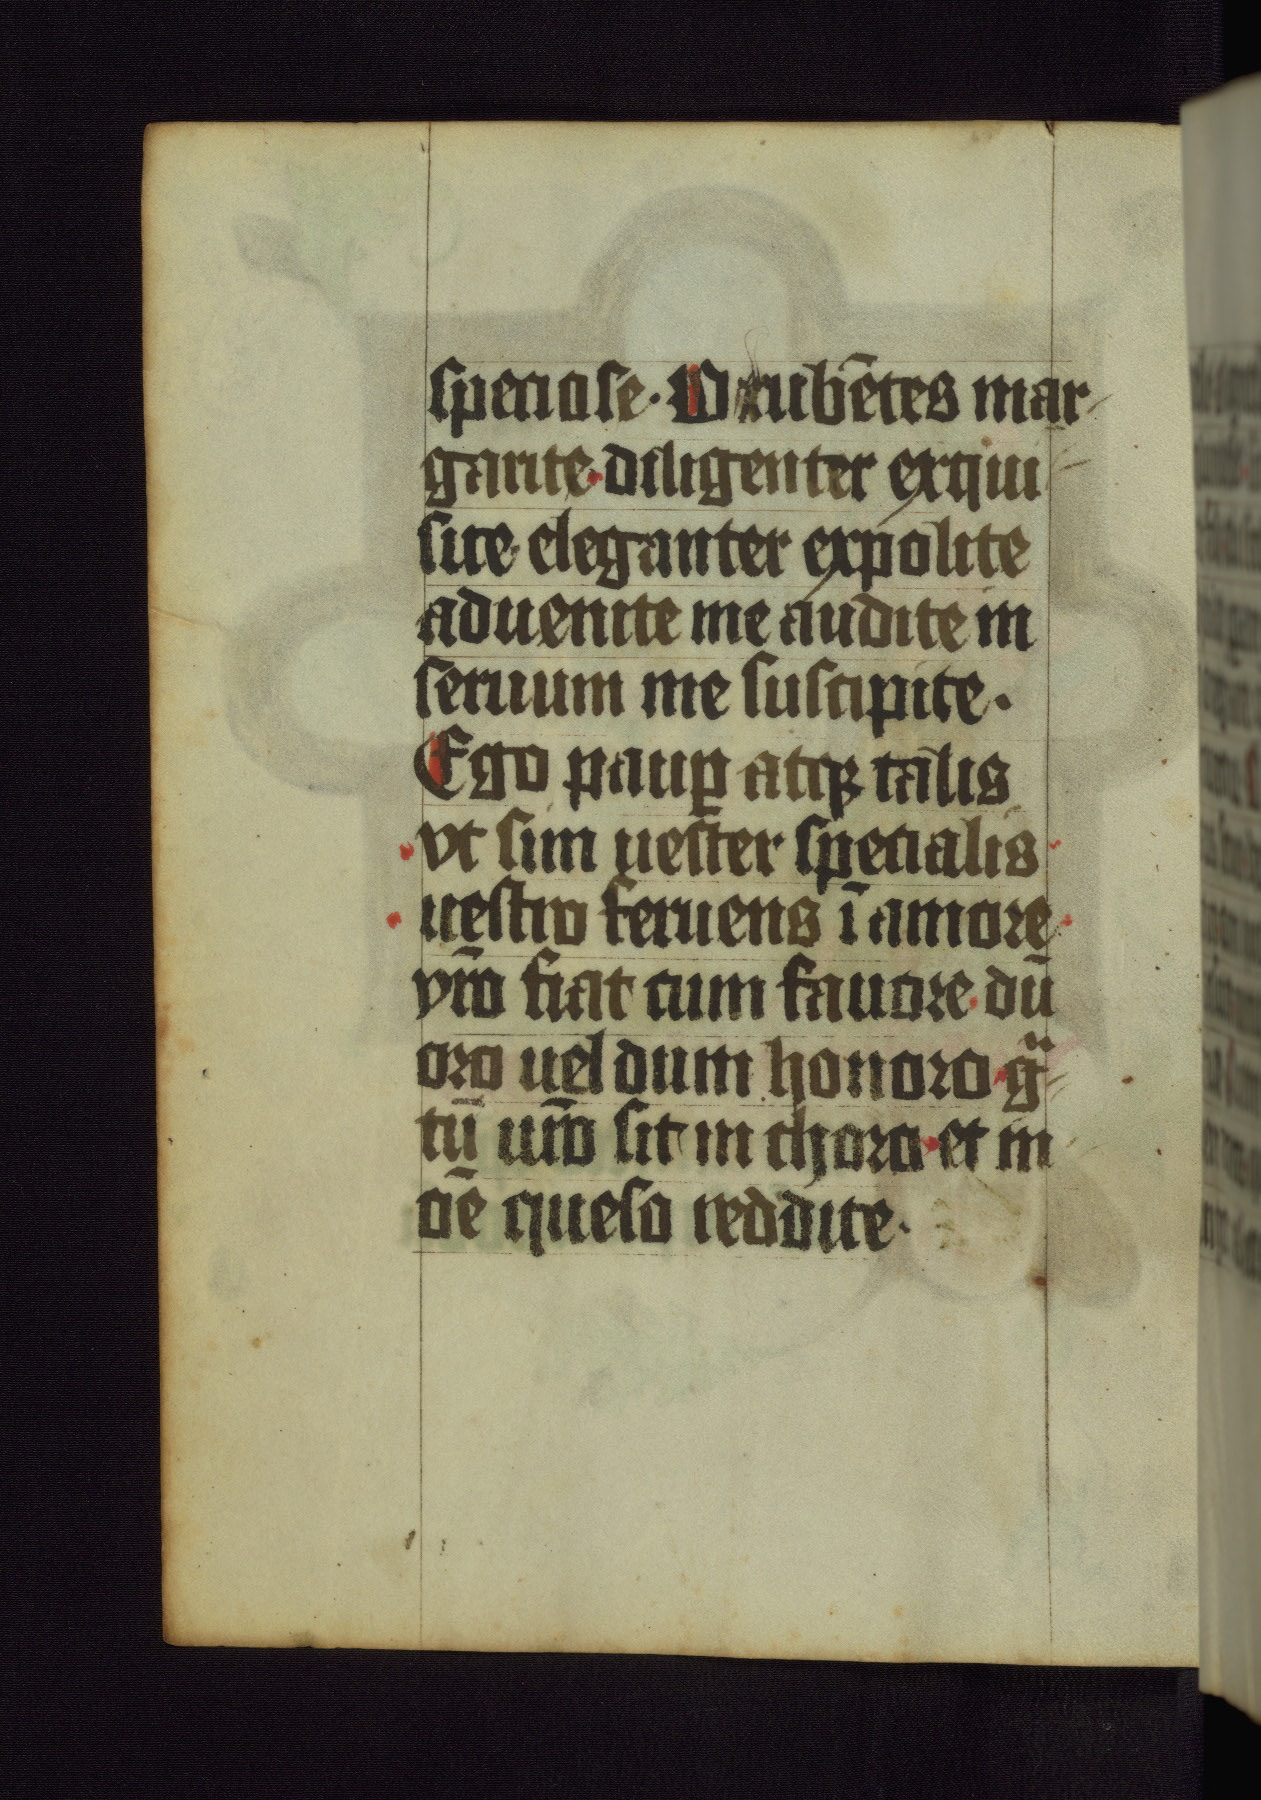 speciose. O rubētes mar-
garite diligenter exqui
site eleganter expolite
aduenite me audite in
seruum me suscipite.
Ego paup̱ atqꝫ talis
vt sim uester specialis
uestro feruens ī amore
vr̄o fiat cum fauore dū
oro uel dum honoro gͣ
tū ur̄o sit in choro et in
cīē queso reddite.